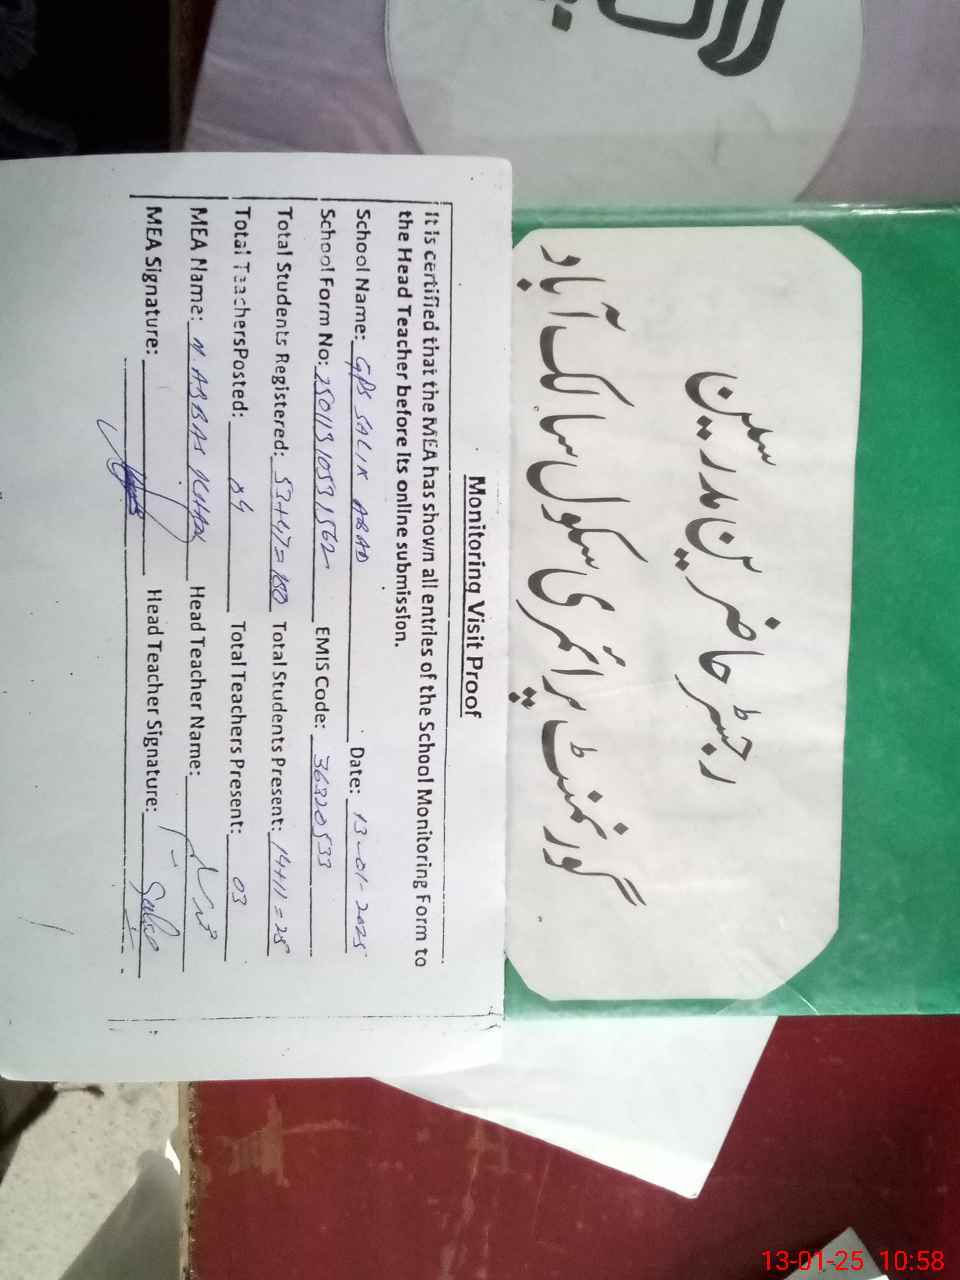 رجسٹر حاضرین مدرسین
گورنمنٹ پرائمری سکول سالک آباد
Monitoring Visit Proof
It is certified that the MEA has shown all entries of the School Monitoring Form to
the Head Teacher before its online submission.
School Name: GPS SALIK ABAD Date: 13-01-2025
School Form No: EMIS Code: 36320533
Total Students Registered: 53+47=100 Total Students Present: 14+11=25
Total Teachers Posted: 04 Total Teachers Present: 03
MEA Name: M. ABBAS Head Teacher Name:
MEA Signature: Head Teacher Signature:
13-01-25 10:58